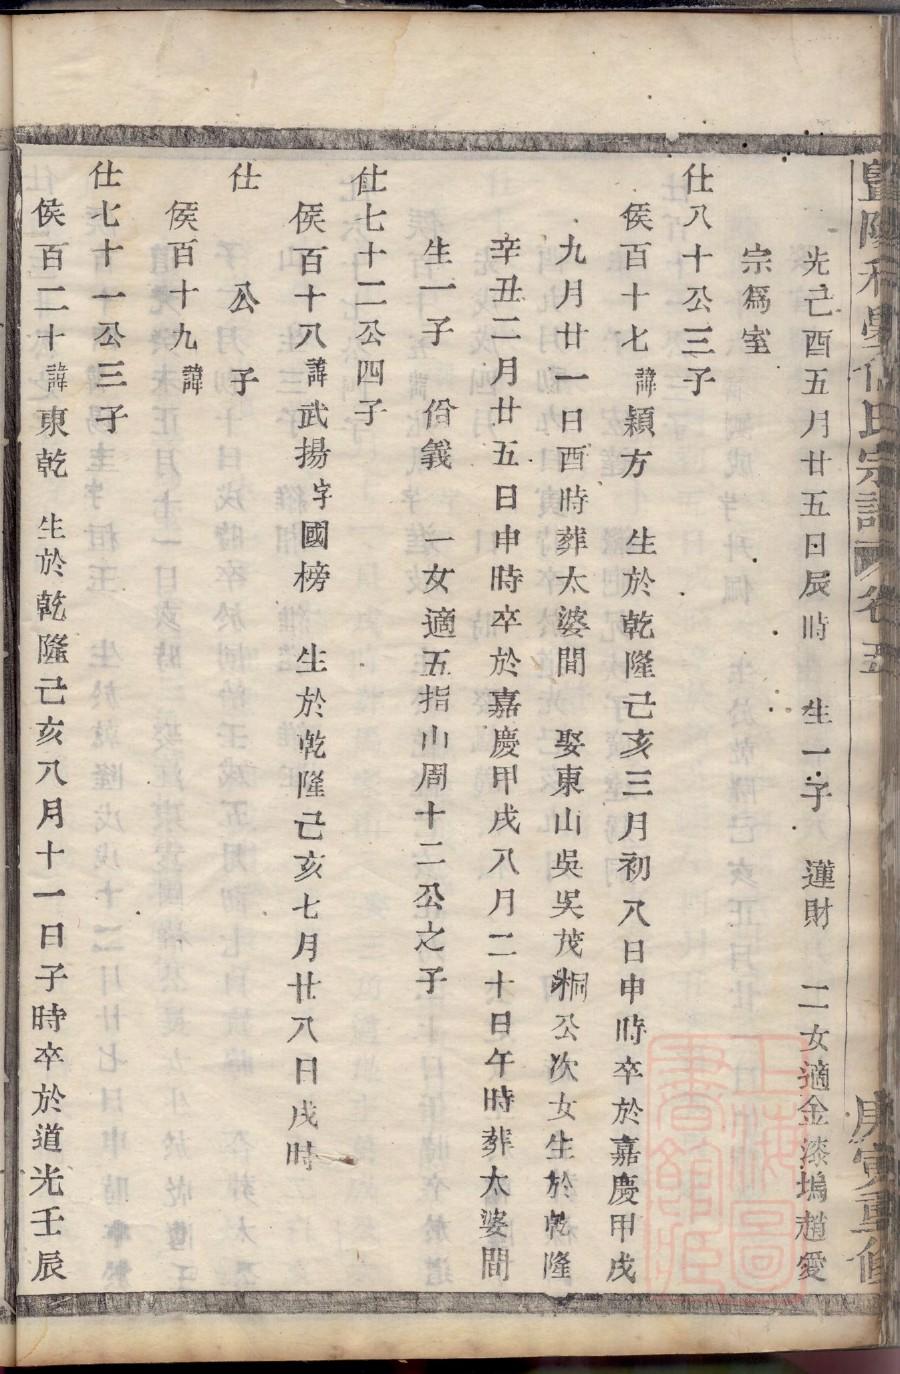 宗譜 卷五
庚寅重修
光己酉五月廿五日辰時 生一子 蓮財 二女適金漆塢趙愛
宗爲室
仕八十公三子
侯百十七諱穎方 生於乾隆己亥三月初八日申時卒於嘉慶甲戌
九月廿一日酉時葬太婆間 娶東山吳吳茂桐公次女生於乾隆
辛丑二月廿五日申時卒於嘉慶甲戌八月二十日午時葬太婆間
生一子 俗義 一女適五指山周十二公之子
仕七十二公四子
侯百十八諱武揚字國榜 生於乾隆己亥七月廿八日戌時
仕 公 子
侯百十九諱
仕七十一公三子
侯百二十諱東乾 生於乾隆己亥八月十一日子時卒於道光壬辰